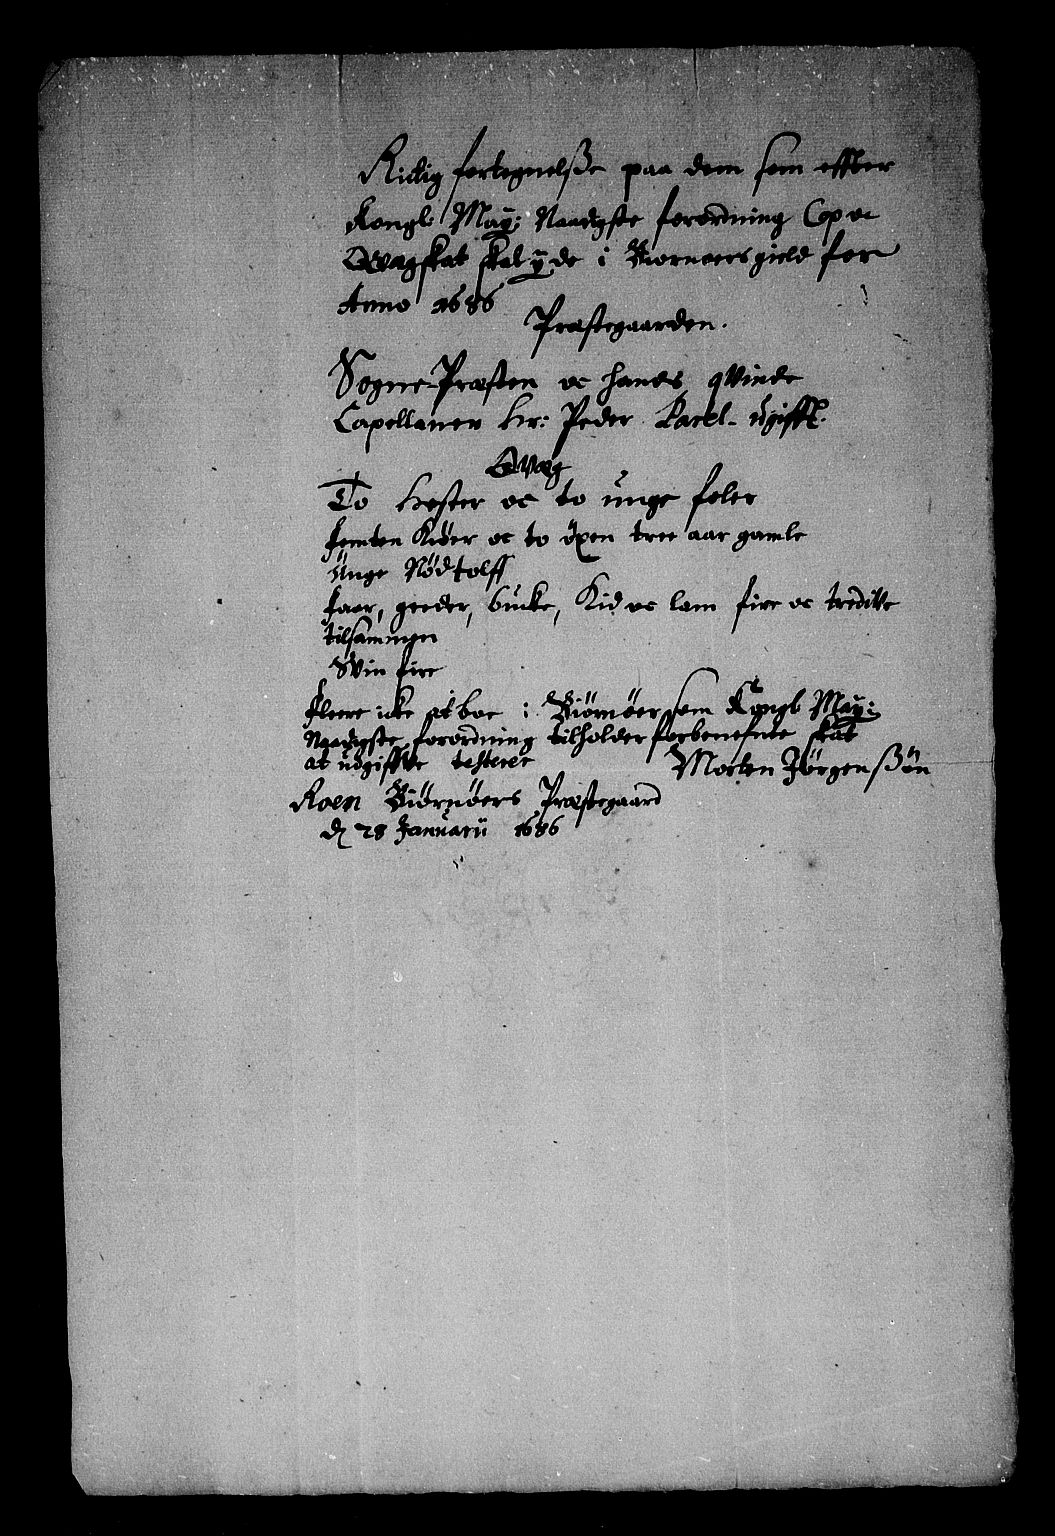 Rictig fortegnelsße paa dem som effter
Kongl: May: Naadigste forordning Cop oc
Qvægskat skal yde i Biørnørs gield for
Anno 1686
Præstegaarden.
Sogne-Præsten oc hands qvinde
Capellanen Hr: Peder ugifft.
Qvæg
To Hester oc to unge foler
femten Kiøer oc to øxen tree aar gamle
Unge Nød tolff
faar, geeder, bucke, Kid oc lam fire oc tredive
tilsammen
Svin fire
fleere icke at boe i Biørnøer som Kongl May:
Naadigste forordning tilholder forbenefnte skat
at udgiffve testerer
Morten Jørgenßøn
Roen Biørnøers Præstegaard
d 28 Januarii 1686